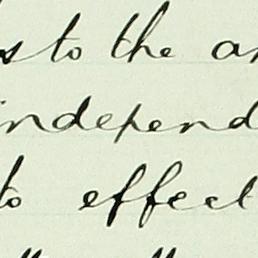 s to the an
independ
to effect
" "